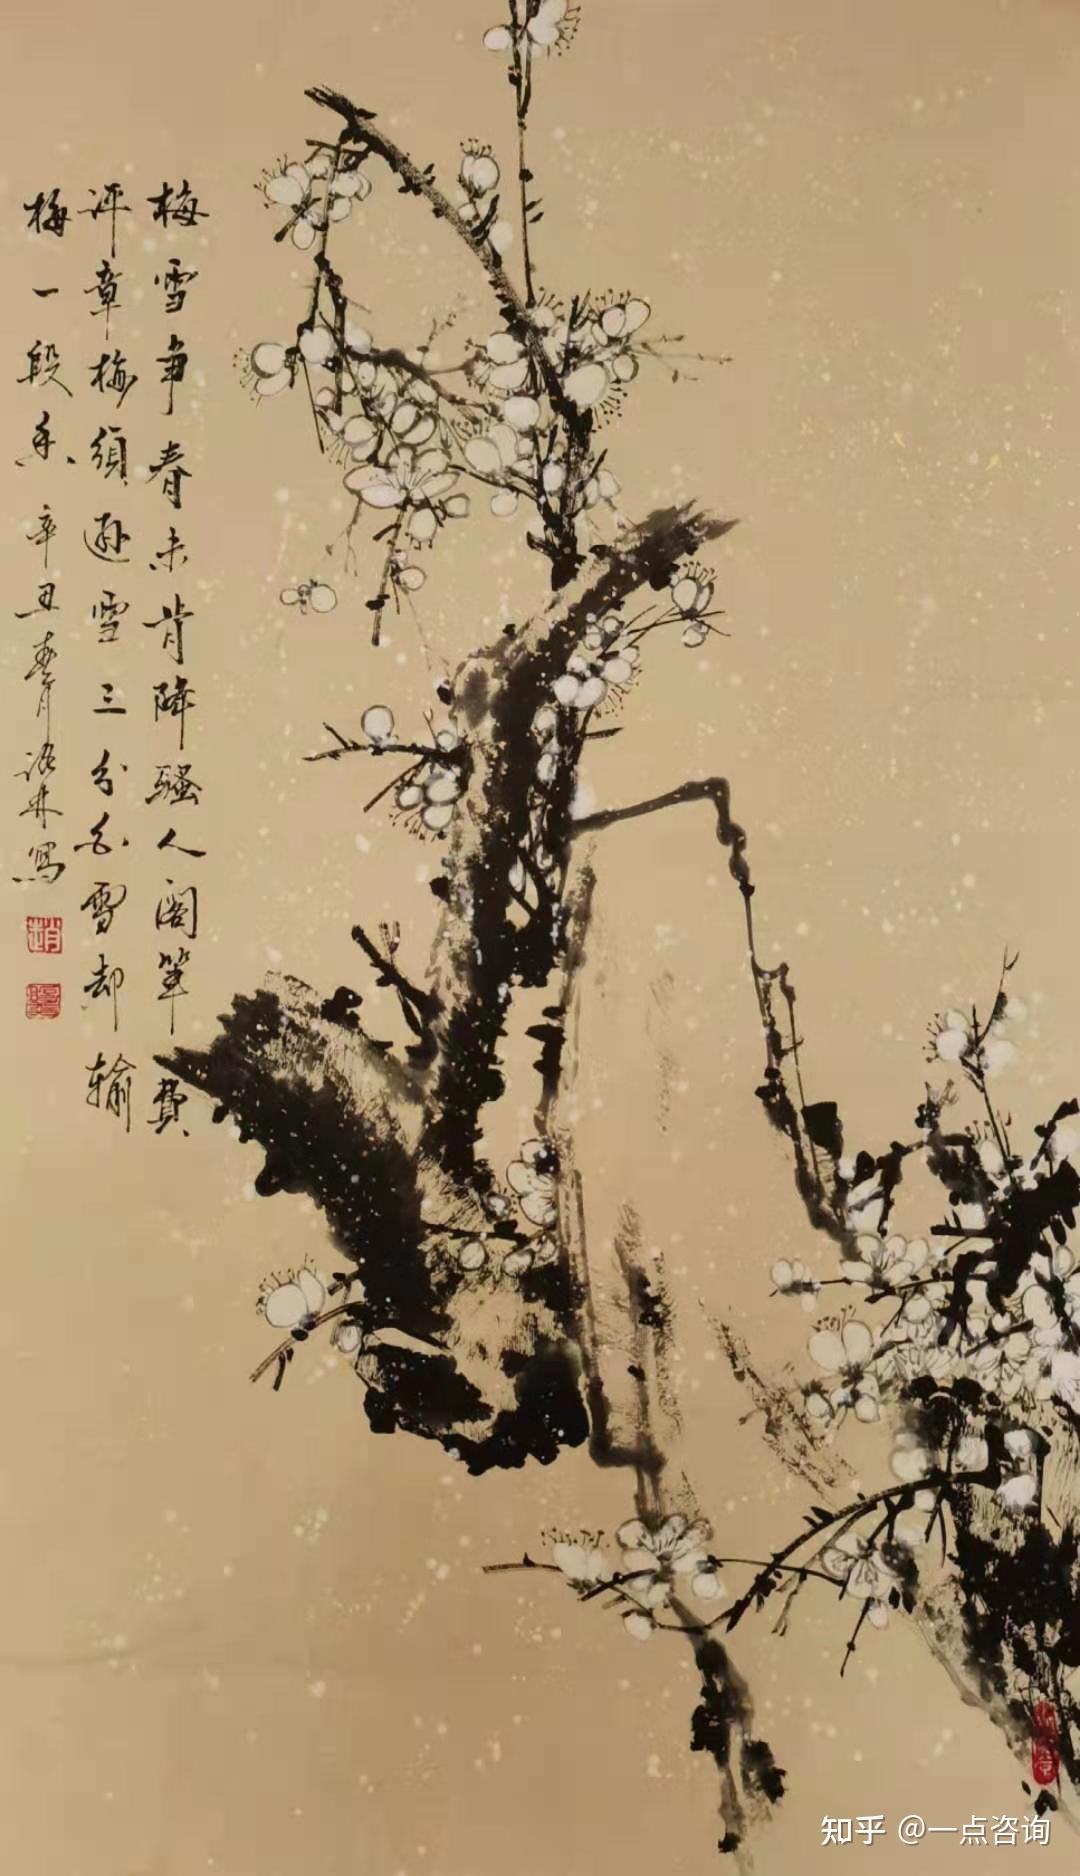 梅雪争春未肯降騷人阁筆費
评章梅須逊雪三分白雪却輸
梅一段香 辛丑春月 写
知乎 @一点咨询